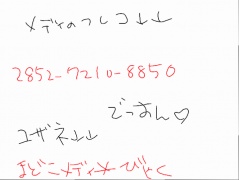 メディのフレコ↓↓
2852-7210-8850
でっおん♡
ユザネ↓↓
まどこメディ